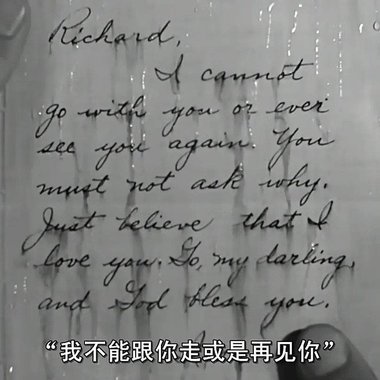 Richard,
I cannot
go with you or ever
see you again. You
must not ask why.
Just believe that I
love you. Go, my darling,
and God bless you.
“我不能跟你走或是再见你”